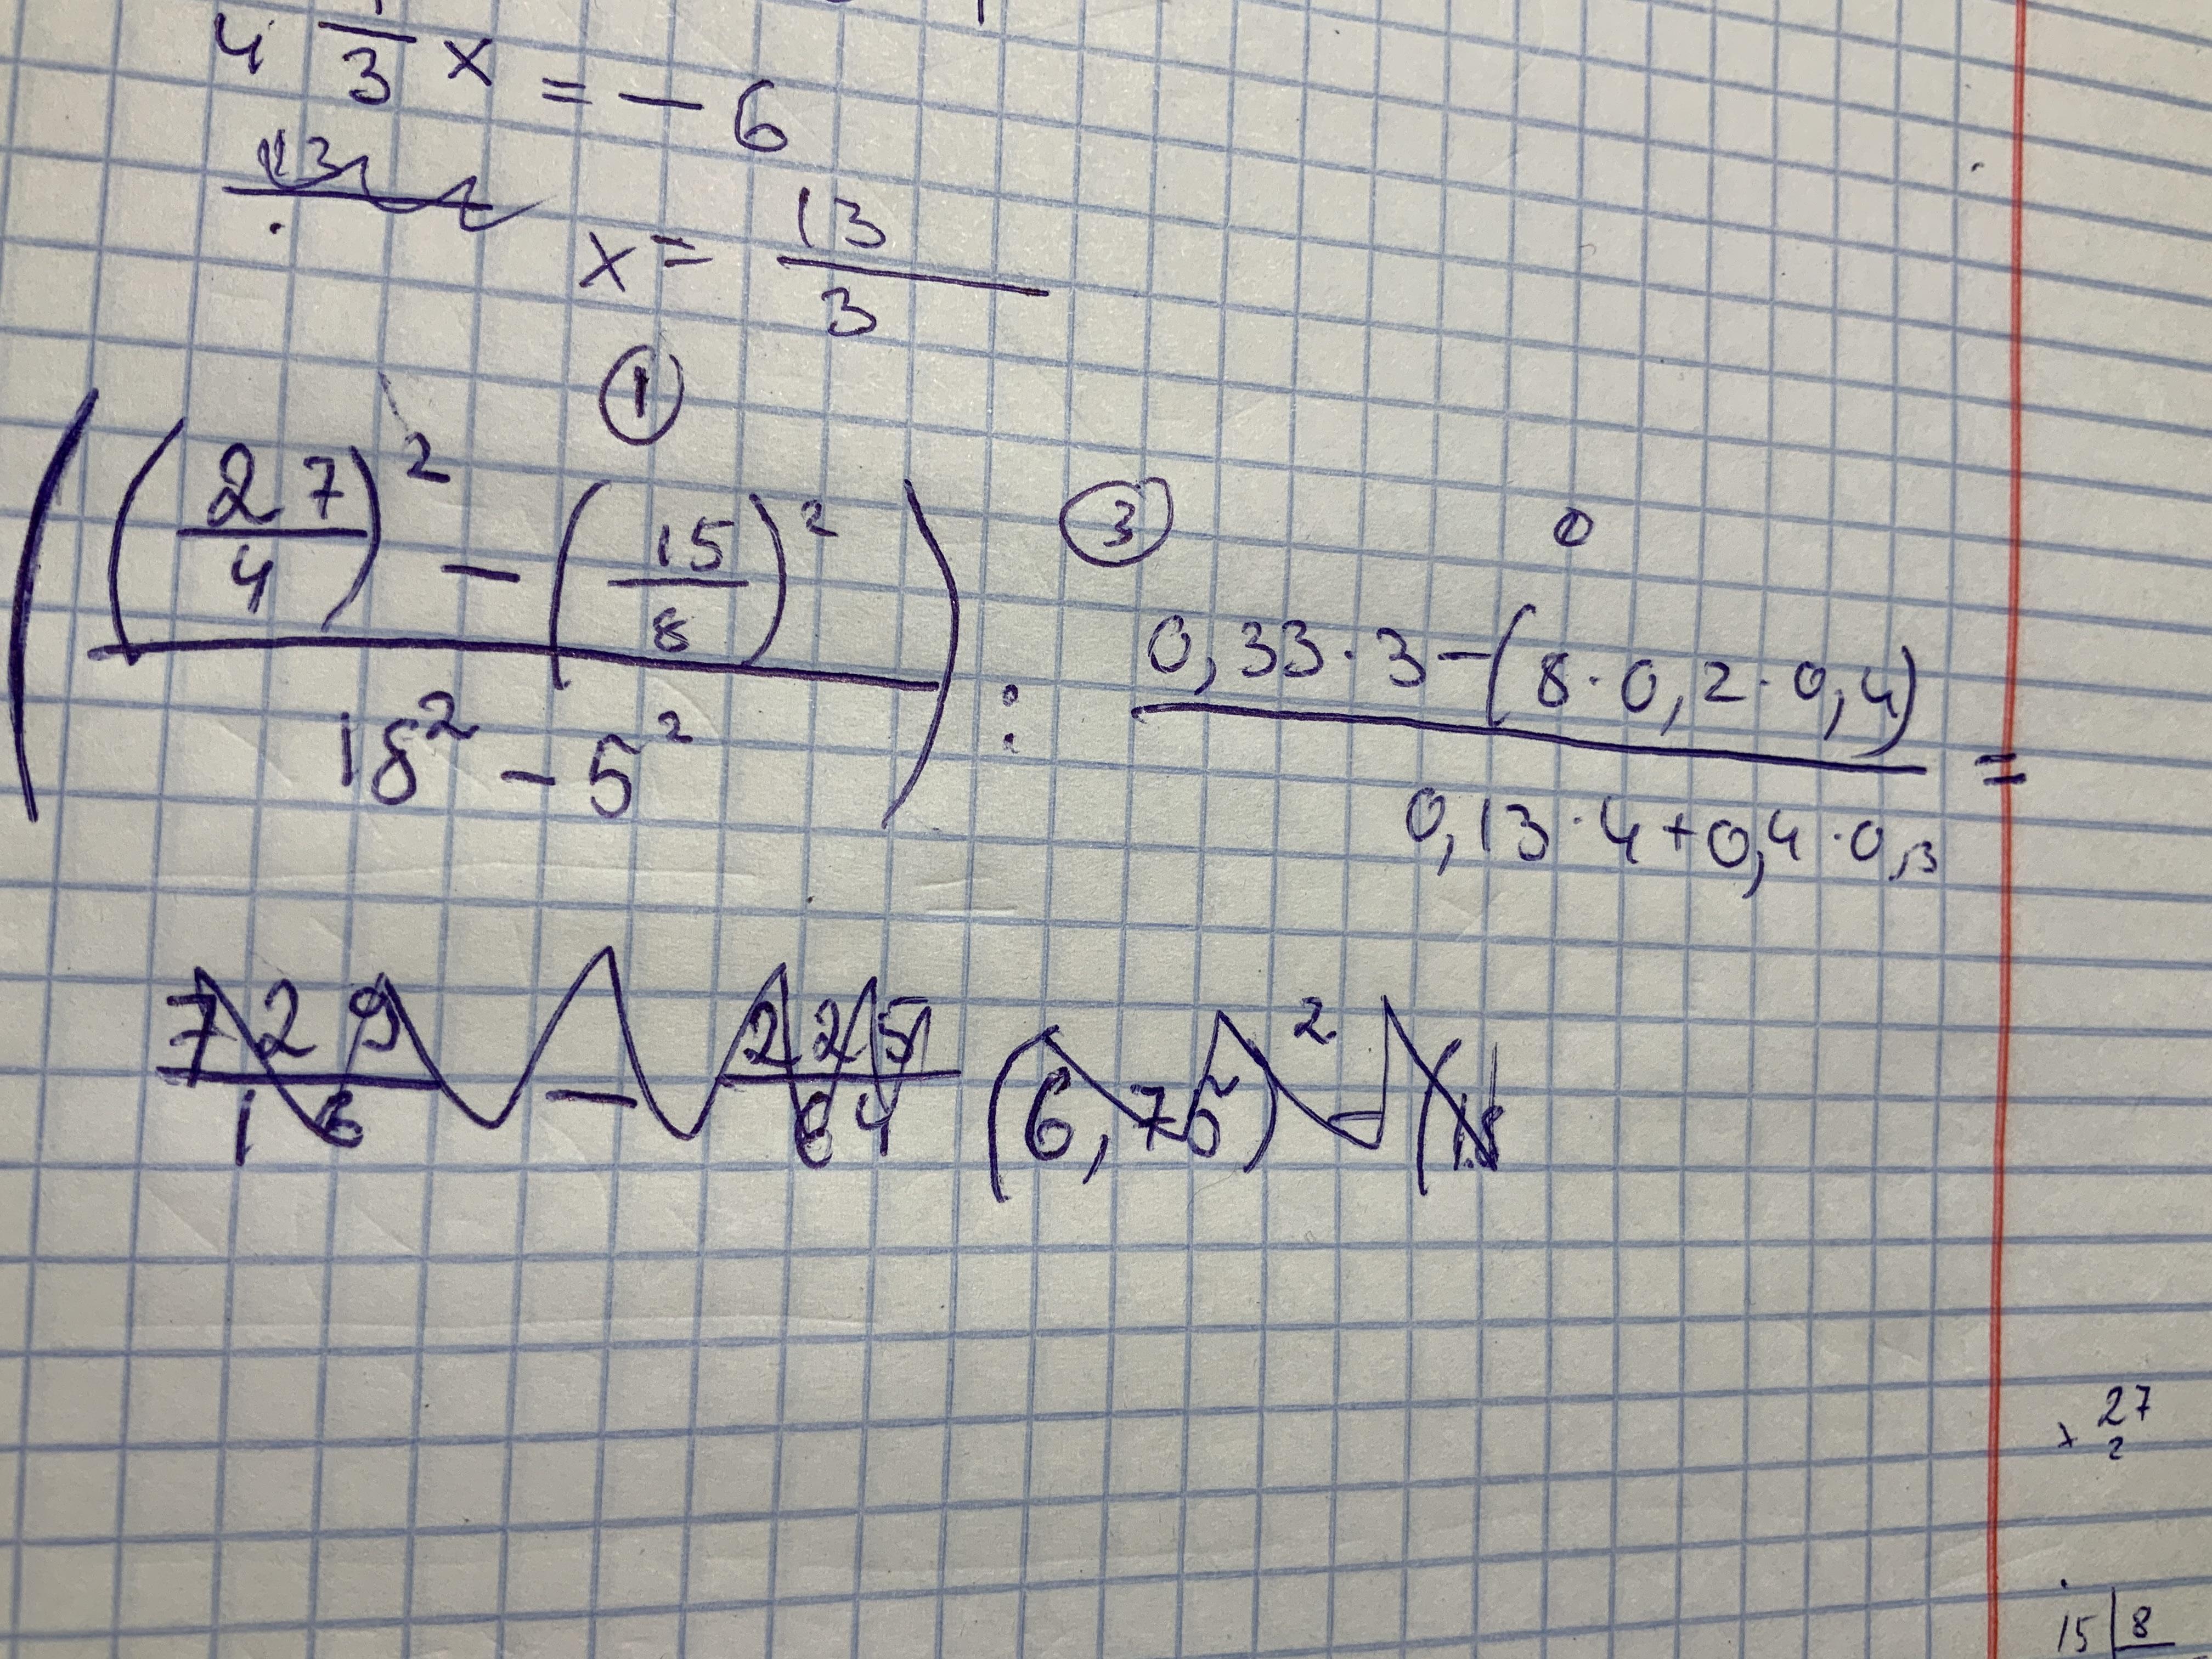 4 1/3 x = - 6
x = 13/3
①
( ( (27/4)² - (15/8)² ) / (18² - 5²) ) : ③ (0,33·3-(8·0,2·0,4)) / (0,13·4+0,4·0,3) =
729/16 - 225/64 (6,75)² - (1.8
× 27
2
15 | 8